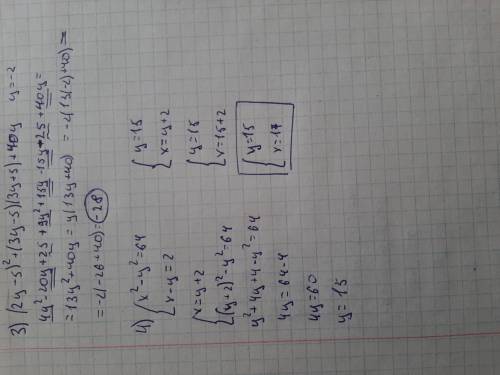 3) (2y-5)²+(3y-5)(3y+5)+40y y=-2
4y²-20y+25+9y²+15y-15y-25+40y=
=13y²+40y=y(13y+40)=-2(13(-2)+40)=
=-2(-26+40)=-28
4) { x²-y²=64
x-y=2
{ x=y+2
(y+2)²-y²=64
y²+4y+4-y²=64
4y=64-4
4y=60
y=15
{ y=15
x=y+2
{ y=15
x=15+2
{ y=15
x=17